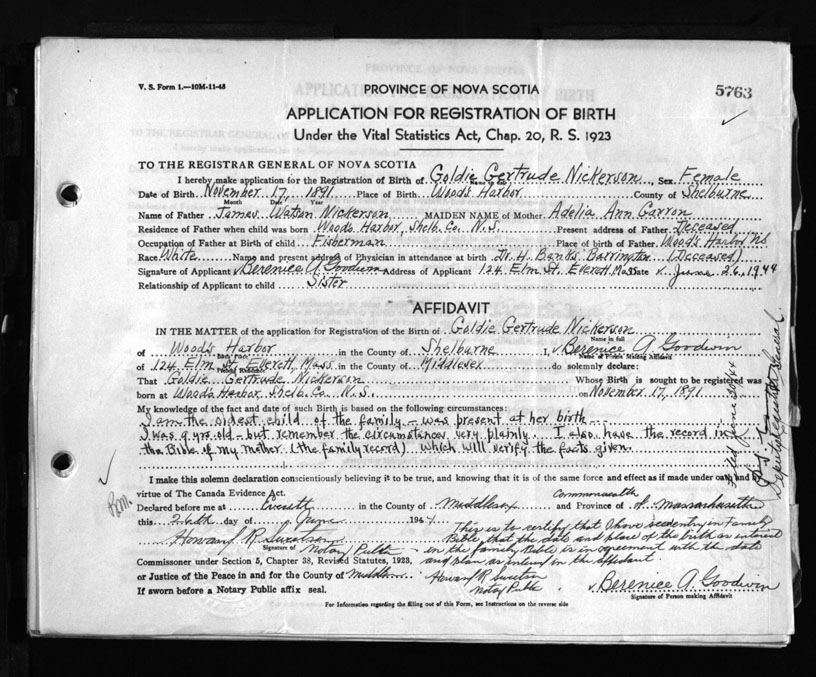 V. S. Form 1.—10M-11-43
PROVINCE OF NOVA SCOTIA
5763
APPLICATION FOR REGISTRATION OF BIRTH
Under the Vital Statistics Act, Chap. 20, R. S. 1923
TO THE REGISTRAR GENERAL OF NOVA SCOTIA
I hereby make application for the Registration of Birth of Goldie Gertrude Nickerson, Sex Female
Name in full
Date of Birth November 17, 1891 Place of Birth Woods Harbor County of Shelburne
Month Date Year
Name of Father James Watson Nickerson MAIDEN NAME of Mother Adelia Ann Garron
Residence of Father when child was born Woods Harbor, Shelb. Co. N.S. Present address of Father Deceased
Occupation of Father at Birth of child Fisherman Place of birth of Father Wood's Harbor NS
Race White Name and present address of Physician in attendance at birth Dr. H. Banks Barrington (Deceased)
Signature of Applicant Berenice A. Goodwin Address of Applicant 124 Elm St. Everett, Mass Date June 26, 1944
Relationship of Applicant to child Sister
AFFIDAVIT
IN THE MATTER of the application for Registration of the Birth of Goldie Gertrude Nickerson
Name in full
of Wood's Harbor in the County of Shelburne I, Berenice A Goodwin
Birth Place
Name of Person Making Affidavit
of 124 Elm St Everett, Mass in the County of Middlesex do solemnly declare:
Present Residence
That Goldie Gertrude Nickerson Whose Birth is sought to be registered was
born at Wood's Harbor Shelb. Co. N.S. on November 17, 1891
My knowledge of the fact and date of such Birth is based on the following circumstances:
I am the oldest child of the family – was present at her birth
I was 9 yrs. old – but remember the circumstances very plainly. I also have the record in
the Bible of my mother (the family record) which will verify the facts given.
I make this solemn declaration conscientiously believing it to be true, and knowing that it is of the same force and effect as if made under oath and by
virtue of The Canada Evidence Act.
Commonwealth
Declared before me at Everett in the County of Middlesex and Province of Massachusetts
this 26th day of June 1944
This is to certify that I have seen entry in family
Bible, that the date and place of the birth as entered
in the family Bible is in agreement with the date
and place as entered in the affidavit.
Howard R Swertson
Signature of Notary Public
Commissioner under Section 5, Chapter 38, Revised Statutes, 1923,
or Justice of the Peace in and for the County of Middlesex
Howard R Swertson
Notary Public
If sworn before a Notary Public affix seal.
Berenice A. Goodwin
Signature of Person making Affidavit
For Information regarding the filling out of this Form, see Instructions on the reverse side
Filed June 30/44
Deputy Registrar General